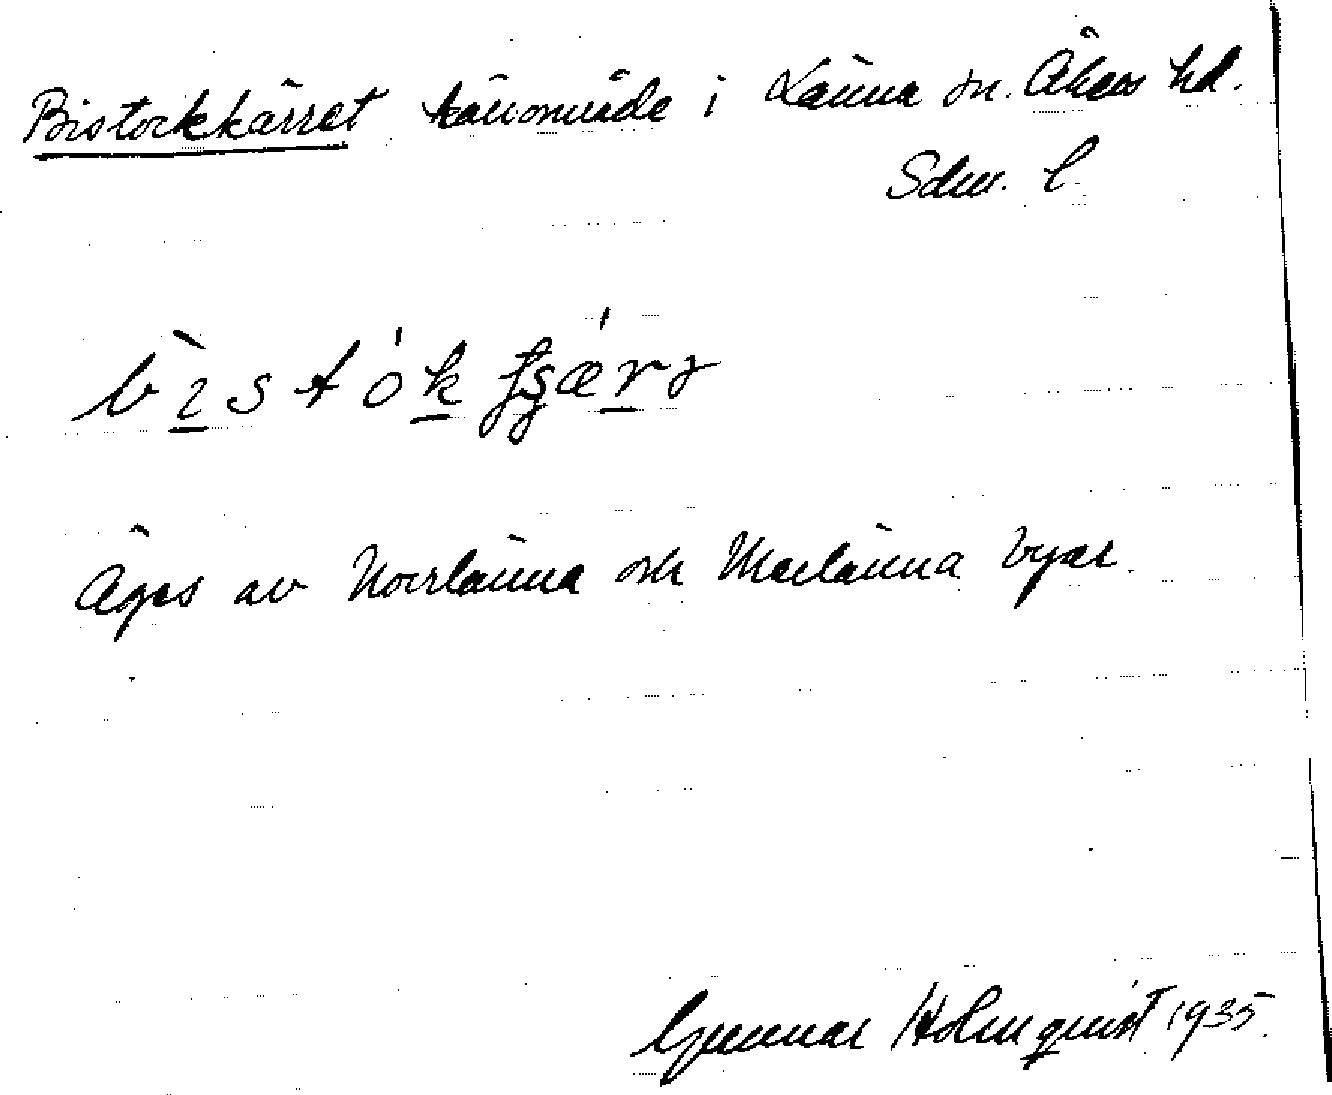 Bistockkärret kärrområde i Länna sn. Åkers hd.
Sdm. l.
bìstókʃʂærɹ
Äges av Norrlänna och Merlänna byar.
Gunnar Holmquist 1935.